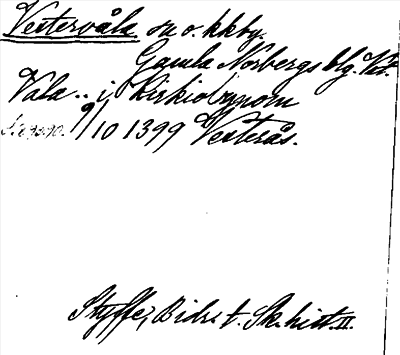 Vestervåla sn o. kkby.
Gamla Norbergs blg. Vm.
Vala .. i Kirkiobynom
9/10 1399 Vesterås.
Styffe, Bidr. t. Sk. hist. II.